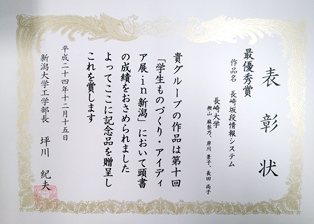 表彰状
最優秀賞
作品名 長崎坂段情報システム
長崎大学
貴グループの作品は第十回
「学生ものづくり・アイディ
ア展・in新潟」において頭書
の成績をおさめられました
よってここに記念品を贈呈し
これを賞します
平成二十四年十二月十五日
新潟大学工学部長 坪川 紀夫